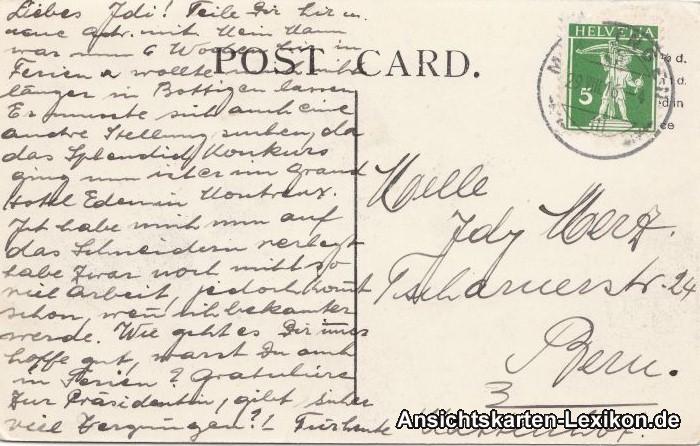 Liebes Idi! Teile Dir hier m.
neue Adr. mit Mein Mann
war nun 6 Wochen hier in
Ferien & wollte mich nicht
länger in Bottigen lassen
Er musste sich auch eine
andre Stellung suchen, da
das Splendid Konkurs
ging nun ist er im Grand
Hotel Eden in Montreux.
Ich habe mich nun auf
das Schneidern verlegt
habe zwar noch nicht so
viel Arbeit, jedoch kommt
schon, wenn ich bekannter
werde. Wie geht es Dir immer
hoffe gut, warst Du auch
in Ferien? Gratuliere
Zur Präsidentin, gibt sicher
viel Vergnügen?!
POST CARD.
HELVETIA
5
Melle
Idy Merz.
Tscharnerstr. 24
Bern.
3
Ansichtskarten-Lexikon.de